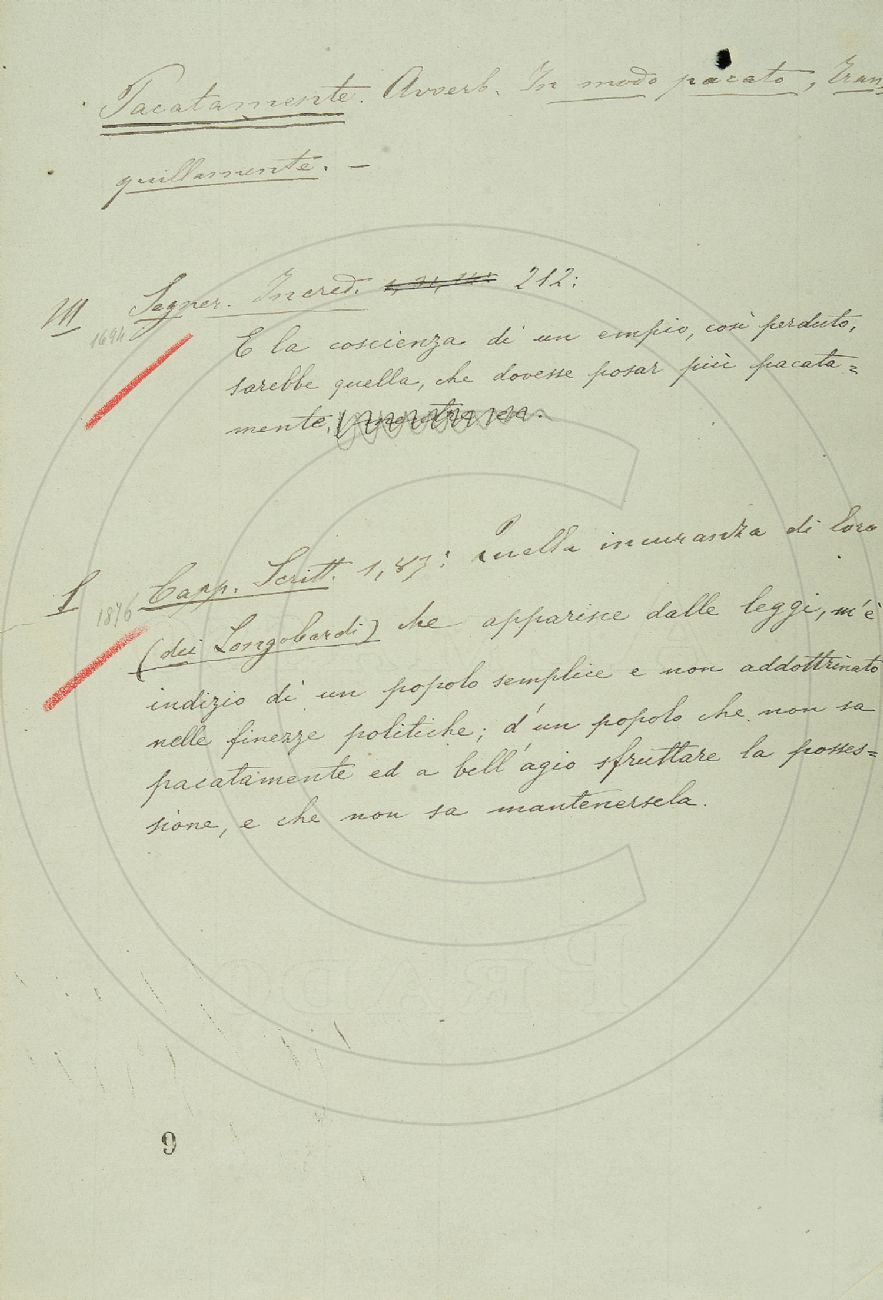 Pacatamente. Avverb. In modo pacato, Tran=
quillamente. –
III Segner. Incred. 212:
1694
E la coscienza di un empio, così perduto,
sarebbe quella, che dovesse posar più pacata=
mente.
I Capp. Scritt. 1, 87: Quella incuranza di loro
1876
(dei Longobardi) che apparisce dalle leggi, m'è
indizio di un popolo semplice e non addottrinato
nelle finezze politiche; d'un popolo che non sa
pacatamente ed a bell'agio sfruttare la posses=
sione, e che non sa mantenersela.
PRADO
9